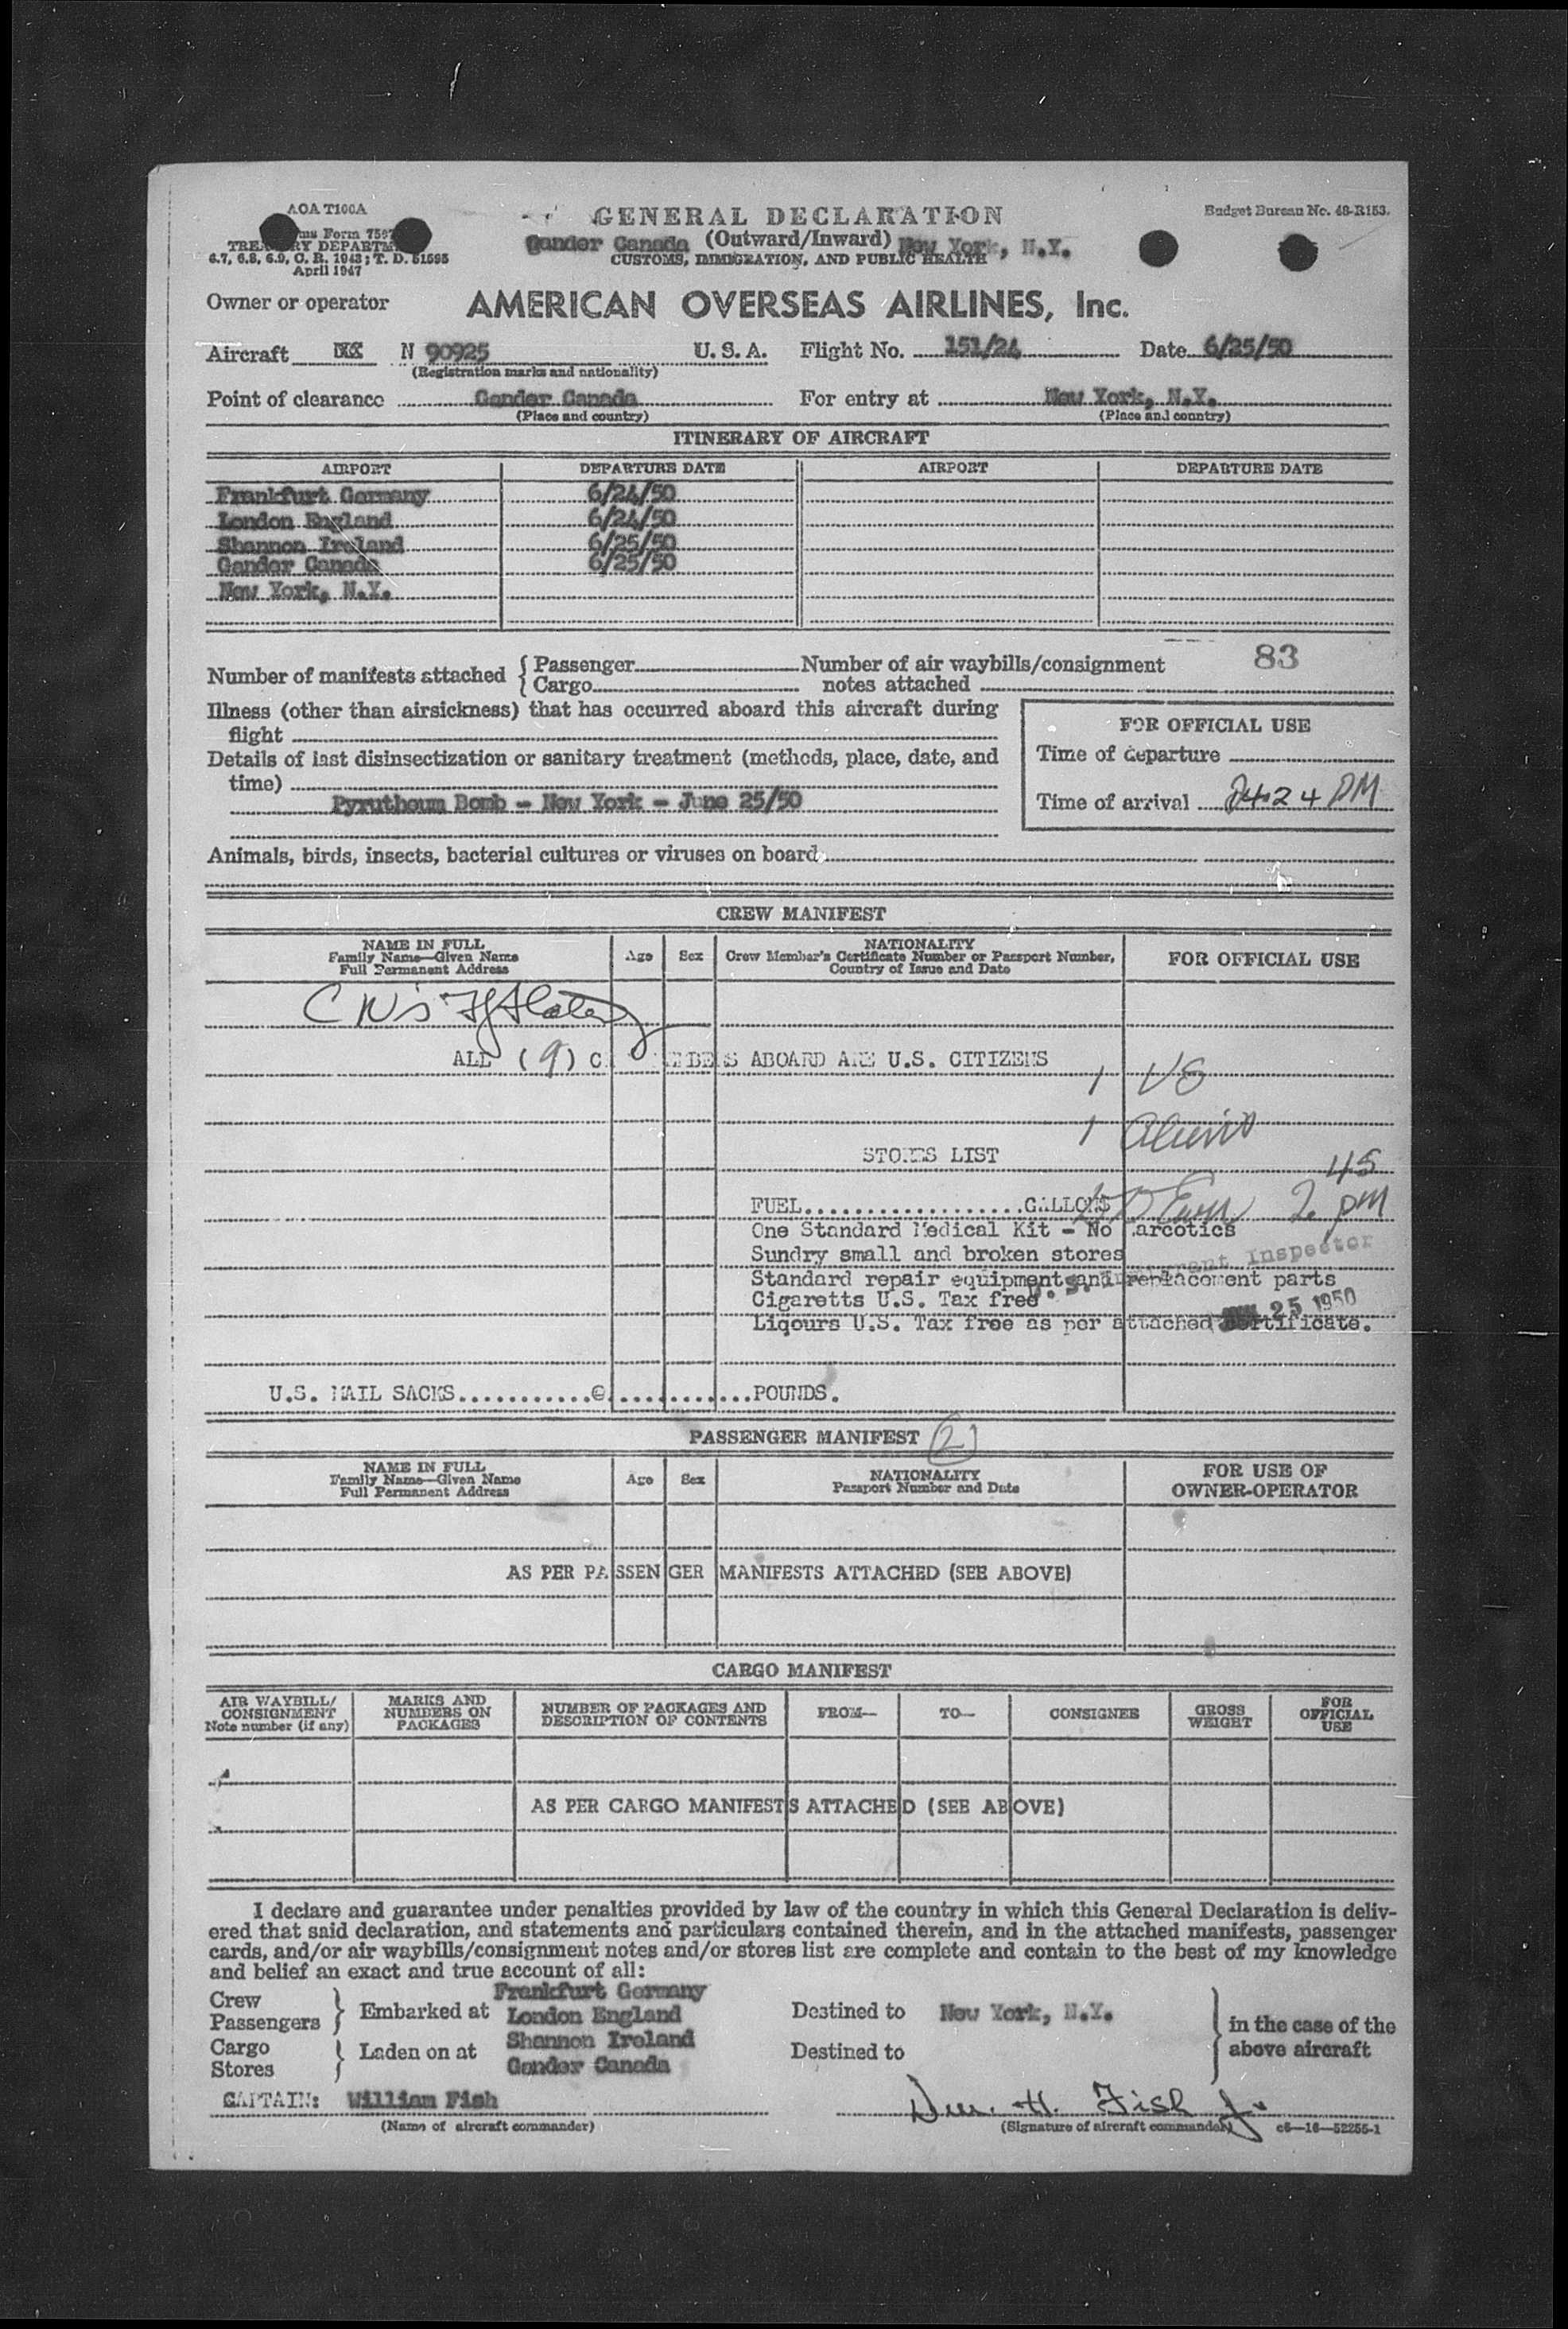 AOA T100A
GENERAL DECLARATION
Budget Bureau No. 48-R153.
Form 7507
(Outward/Inward)
Gander Canada New York, N.Y.
TREASURY DEPARTMENT
CUSTOMS, IMMIGRATION, AND PUBLIC HEALTH
6.7, 6.8, 6.9, C. R. 1943; T. D. 51595
April 1947
Owner or operator AMERICAN OVERSEAS AIRLINES, Inc.
Aircraft N 90925 U. S. A. Flight No. 151/24 Date 6/25/50
(Registration marks and nationality)
Point of clearance Gander Canada For entry at New York, N.Y.
(Place and country) (Place and country)
ITINERARY OF AIRCRAFT
AIRPORT DEPARTURE DATE AIRPORT DEPARTURE DATE
Frankfurt Germany 6/24/50
London England 6/24/50
Shannon Ireland 6/25/50
Gander Canada 6/25/50
New York, N.Y.
83
Number of manifests attached { Passenger Number of air waybills/consignment
{ Cargo notes attached
Illness (other than airsickness) that has occurred aboard this aircraft during
flight
FOR OFFICIAL USE
Details of last disinsectization or sanitary treatment (methods, place, date, and
time)
Time of departure
Pyrutheum Bomb - New York - June 25/50
Time of arrival 2424 PM
Animals, birds, insects, bacterial cultures or viruses on board
CREW MANIFEST
NAME IN FULL
Family Name—Given Name
Full Permanent Address
Age Sex
NATIONALITY
Crew Member's Certificate Number or Passport Number,
Country of Issue and Date
FOR OFFICIAL USE
ALL (9) C ABOARD ARE U.S. CITIZENS
1
1 Aliens
STORES LIST
45
FUEL..................GALLONS
2 pm
One Standard Medical Kit - No Narcotics
Sundry small and broken stores
U.S. Immigrant Inspector
Standard repair equipment and replacement parts
Cigaretts U.S. Tax free
JUN 25 1950
Liqours U.S. Tax free as per attached certificate.
U.S. MAIL SACKS...........@............POUNDS.
PASSENGER MANIFEST (2)
NAME IN FULL
Family Name—Given Name
Full Permanent Address
Age Sex
NATIONALITY
Passport Number and Date
FOR USE OF
OWNER-OPERATOR
AS PER PASSENGER MANIFESTS ATTACHED (SEE ABOVE)
CARGO MANIFEST
AIR WAYBILL/
CONSIGNMENT
Note number (if any)
MARKS AND
NUMBERS ON
PACKAGES
NUMBER OF PACKAGES AND
DESCRIPTION OF CONTENTS
FROM—
TO—
CONSIGNEE
GROSS
WEIGHT
FOR
OFFICIAL
USE
AS PER CARGO MANIFESTS ATTACHED (SEE ABOVE)
I declare and guarantee under penalties provided by law of the country in which this General Declaration is deliv-
ered that said declaration, and statements and particulars contained therein, and in the attached manifests, passenger
cards, and/or air waybills/consignment notes and/or stores list are complete and contain to the best of my knowledge
and belief an exact and true account of all:
Crew
Passengers } Embarked at
Cargo
Stores } Laden on at
Frankfurt Germany
London England
Shannon Ireland
Gander Canada
Destined to New York, N.Y.
Destined to
} in the case of the
above aircraft
CAPTAIN: William Fish
Wm. H. Fish Jr
(Name of aircraft commander) (Signature of aircraft commander) c6—16—52255-1